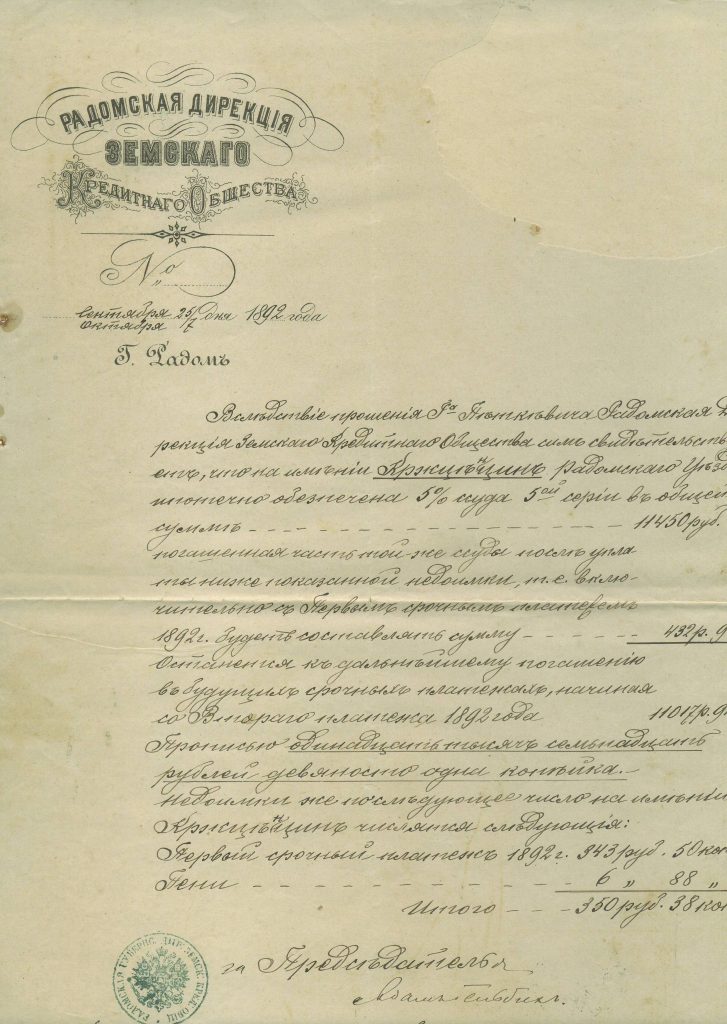 РАДОМСКАЯ ДИРЕКЦІЯ
ЗЕМСКАГО
КРЕДИТНАГО ОБЩЕСТВА
№
Сентября 25/7 дня 1892 года
Октября
Г. Радомъ
Вслѣдствіе прошенія Гⁿᵃ Радомская Ди
рекція Земскаго Кредитнаго Общества симъ свидѣтельству
етъ, что на имѣніи Радомскаго Уѣзда
ипотечно обезпечена 5% ссуда 5ой серіи въ общей
суммѣ – – – 11450 руб.
погашенная часть той же ссуды послѣ упла
ты ниже показанной недоимки, т.е. вклю-
чительно съ Первымъ срочнымъ платежемъ
1892 г. будетъ составлять сумму – – – 432 р. 9
Останется къ дальнѣйшему погашенію
въ будущихъ срочныхъ платежахъ, начиная
со Втораго платежа 1892 года 11017 р. 9
Прописью одинадцать тысячъ семьнадцать
рублей девяносто одна копѣйка. –
Недоимки же по слѣдующее число на имѣніи
числятся слѣдующія:
Первый срочный платежъ 1892 г. 343 руб. 50 коп
Пени – – – 6 „ 88 „
Итого – – – 350 руб. 38 коп
за Предсѣдателя